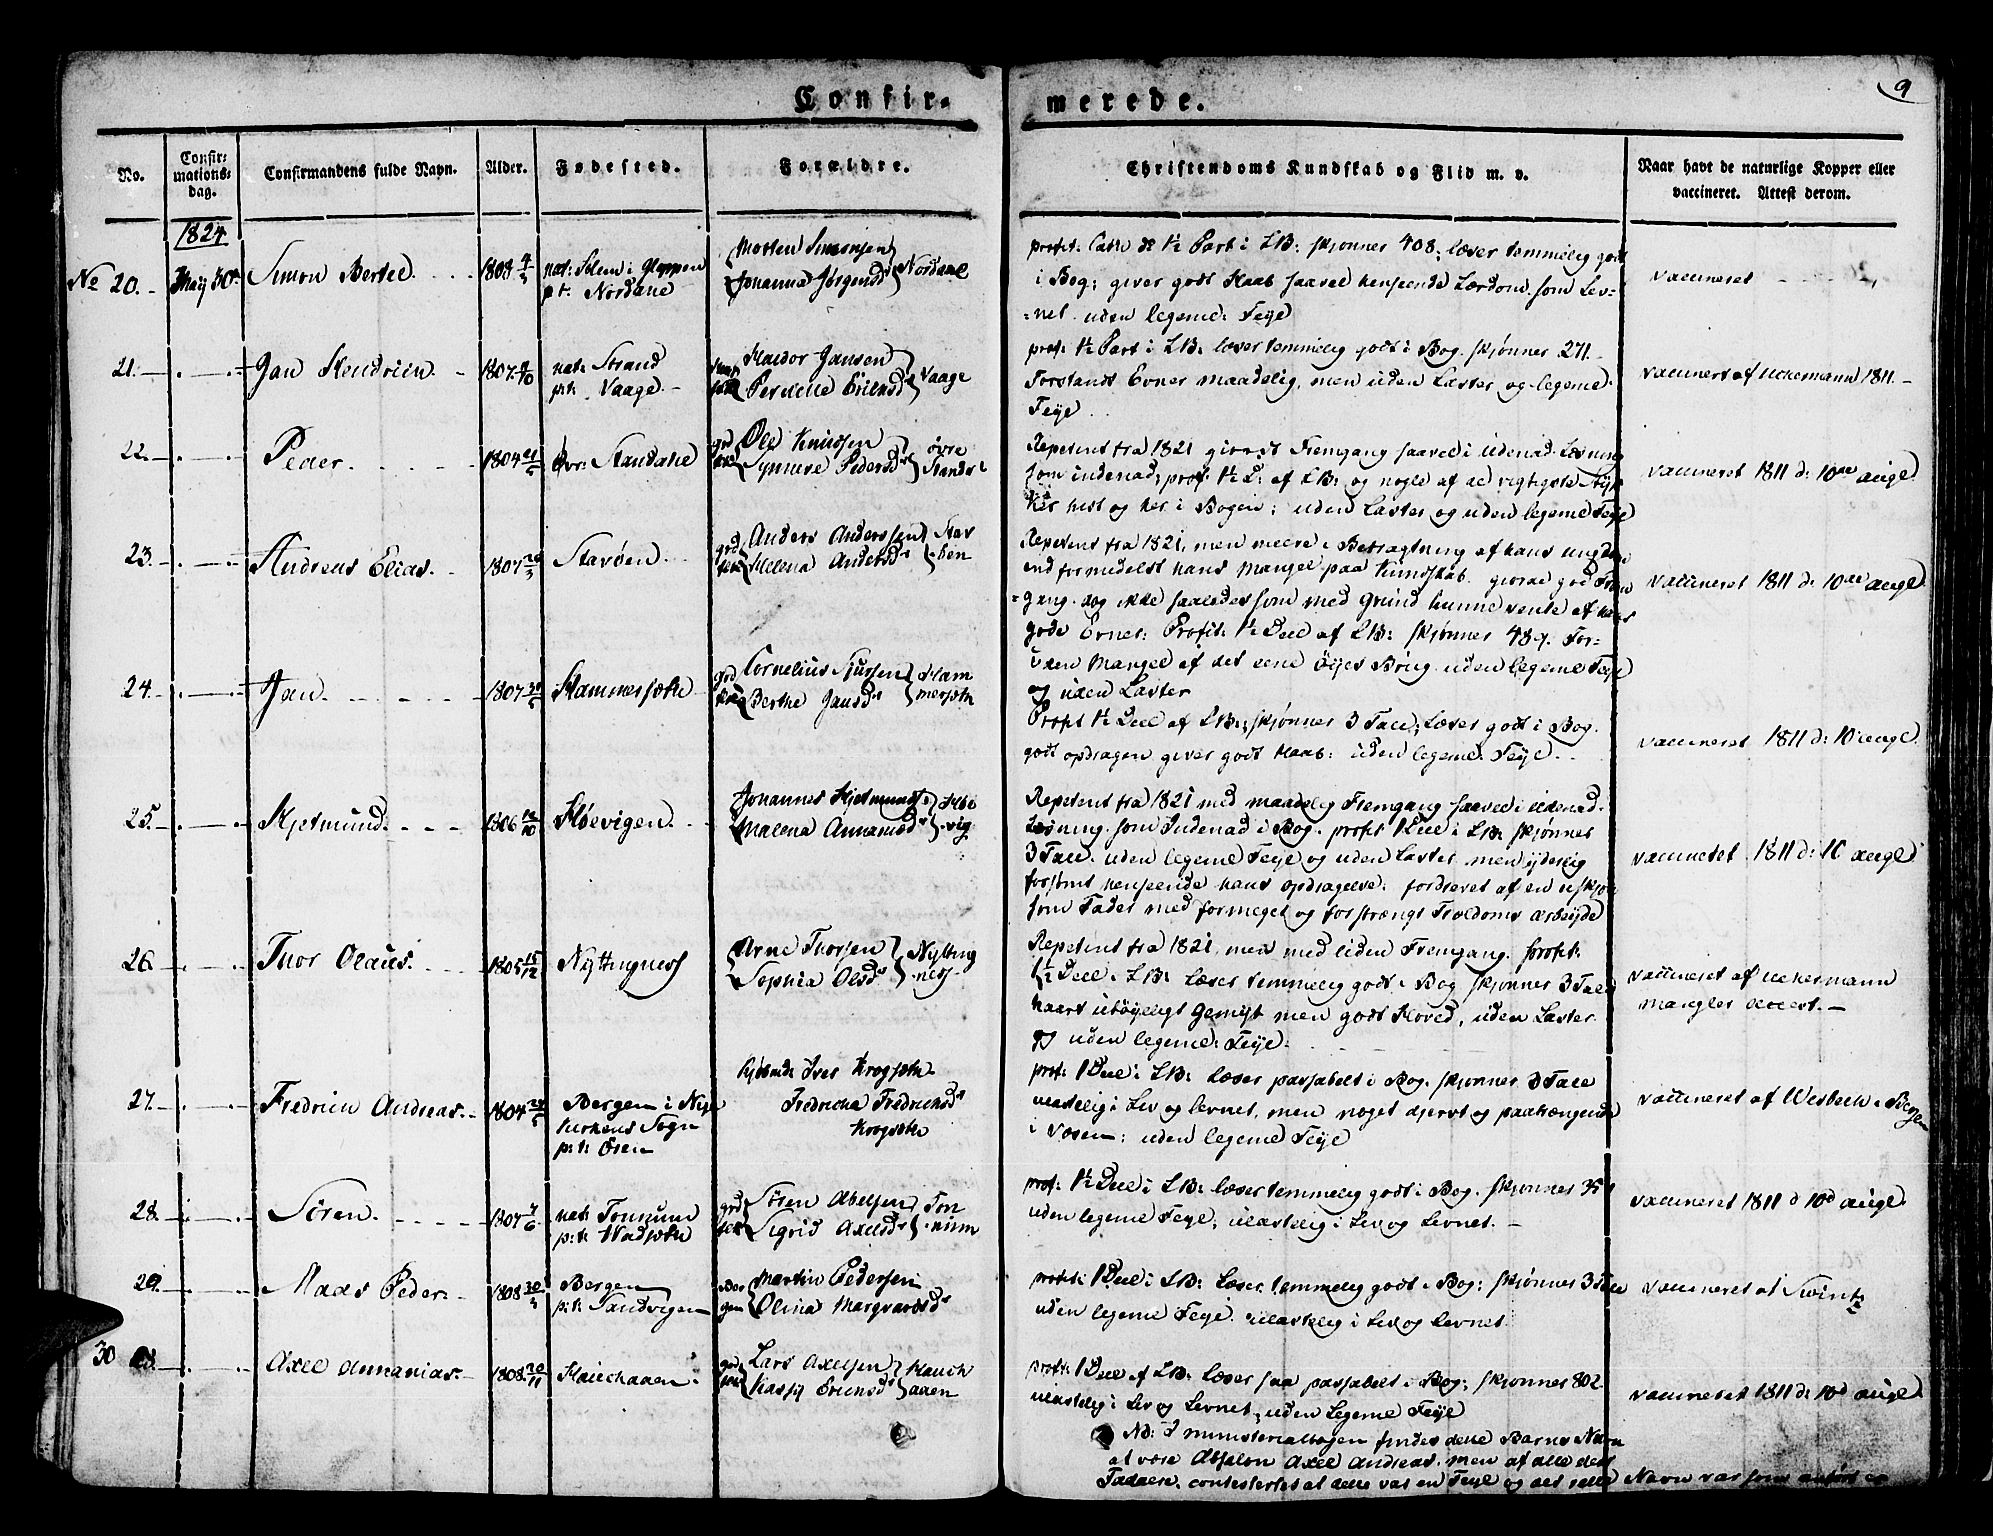 9
Confir- merede.
No.
Confir-
mations-
dag.
Confirmandens fulde Navn.
Alder.
Fødested.
Forældre.
Christendoms Kundskab og Flid m. v.
Naar havt de naturlige Kopper eller
vaccineret. Attest derom.
1824
No 20. May 30. Simon Bertel. 1808
nat: Solem i Gloppen
p.t: Nordane
Morten Simonsen
Johanna Jørgensd
Nordane
profit: 1½ Part i LB: skjønner 408; læser temmelig godt
i Bog; giver godt Haab saavel henseende Lærdom som Lev-
net. uden legeme: Feyl
vaccineret
21. Jan Hendrich. 1807
nat: Strand
p:t: Vaage.
Haldor Jansen
Pernelle
Vaage
prof: 1½ Part i LB: læser temmelig godt i Bog. skjønner 271.
Forstands Evner maadelig, men uden Laster og legeme
Feyl
vaccinert af Uckermann 1811.
22. Peder. 1804
Standahl
Ole Knudsen
Synneve Pedersd
øvre
Repetent fra 1821 giordt Fremgang saavel i udenad Læsning
som indenad; prof. 1½ D: af LB: og nogle af de vigtigste Styk
ker hist og her i Bogen; uden Laster og uden legeme Feyl
vaccineret 1811 d: 10de augl
23. Andreas Elias. 1807
Stavøen
Anders Anderssen
Helena Andersd
Stav
øen
Repetent fra 1821, men meere i Betragtning af hans ungdom
end formedelst hans Mangel paa Kundskab. giorde god Frem
gang dog ikke saaledes som med Grund kunne vente af hans
gode Evner. Profit: 1½ Deel af LB: skjønner 489. For-
uden Mangel af det eene øyes Brug uden legeme Feyl
og uden Laster
vaccineret 1811 d: 10de augl
24. Jan. 1807
Hammersæth
Cornelius Sjursen
Berthe Jansd
Ham
mersæth
Profit 1½ Deel af LB:, skjønner 3 Tall; Læser godt i Bog.
godt opdragen giver godt Haab: uden legeme Feyl.
vaccineret 1811 d: 10 augl.
25. Kjetmund. 1806
Høevigen.
Johannes Kjetmunds
Malena Annaniasd
Høe
vig
Repetent fra 1821 med maadelig Fremgang saavel i udenad
Læsning som Indenad i Bog. profit 1 Deel i LB: skjønner
3 Tall. uden legeme Feyl og uden Laster men yderlig
forsømt henseende hans opdragelse; fordærvet af en uskjøn
som Fader med formeget og forstrængt Troldoms arbeyde
vaccineret 1811 d: 10 augl
26. Thor Olaus. 1805 15/12
Nyttingnes
Arne Thorsen
Sophia Olsd
Nytting
nes
Repetent fra 1821, men med liden Fremgang. profit:
1½ Deel i LB: læser temmelig godt i Bog skjønner 3 Tall
haart ubøyeligt Gemyt men godt Hoved, uden Laster
og uden legeme: Feyl.
vaccineret af Uckermann
mangler attest.
27. Fredrich Andreas. 1804
Bergen i Nye
kirkens Sogn
p:t: Osen
Iver Krogsæth
Fredricka Fredrichsd
Krogsæth
prof: 1 Deel i LB: læser passabelt i Bog. skjønner 3 Tall
ulastelig i Liv og levnet, men noget djerv og paatrængende
i væsen; uden legeme Feyl
vaccineret af Wesbech i Bergen
28. Søren. 1807 7/6
nat: Tonnum
p:t: Vadsæth
Søren Abelsen
Sigrid Axelsd
Ton
num
prof: 1½ Deel i LB: læser temmelig godt i Bog. skjønner 351
uden legeme Feyl; ulastelig i Liv og Levnet.
vaccineret 1811 d 10d augl
29. Mads Peder. 1808
Bergen
p:t: Sandvigen
Ber
gen
Martin Pedersen
Olina Margvardsd
profit: 1 Deel i LB: Læser temmelig godt i Bog: skjønner 3 Tall
uden legeme Feyl. ulastelig i Liv og Levnet.
vaccineret af Swintz
30 Axel Annanias. 1808 20/11
Hauchaaen
Lars Axelsen
Ericksd
Hauch
aaen
profit: 1 Deel af LB: læser saa passabelt i Bog; skjønner 802
ulastelig i Liv og Levnet, uden Legeme Feyl
vaccineret 1811 d: 10d augl
NB: I ministerialbogen findes dette Barns Navn
at være Absalon Axel Andreas, men af alle dets
Faddere contesteres at dette var en Feyl og det rette Navn var som anført er